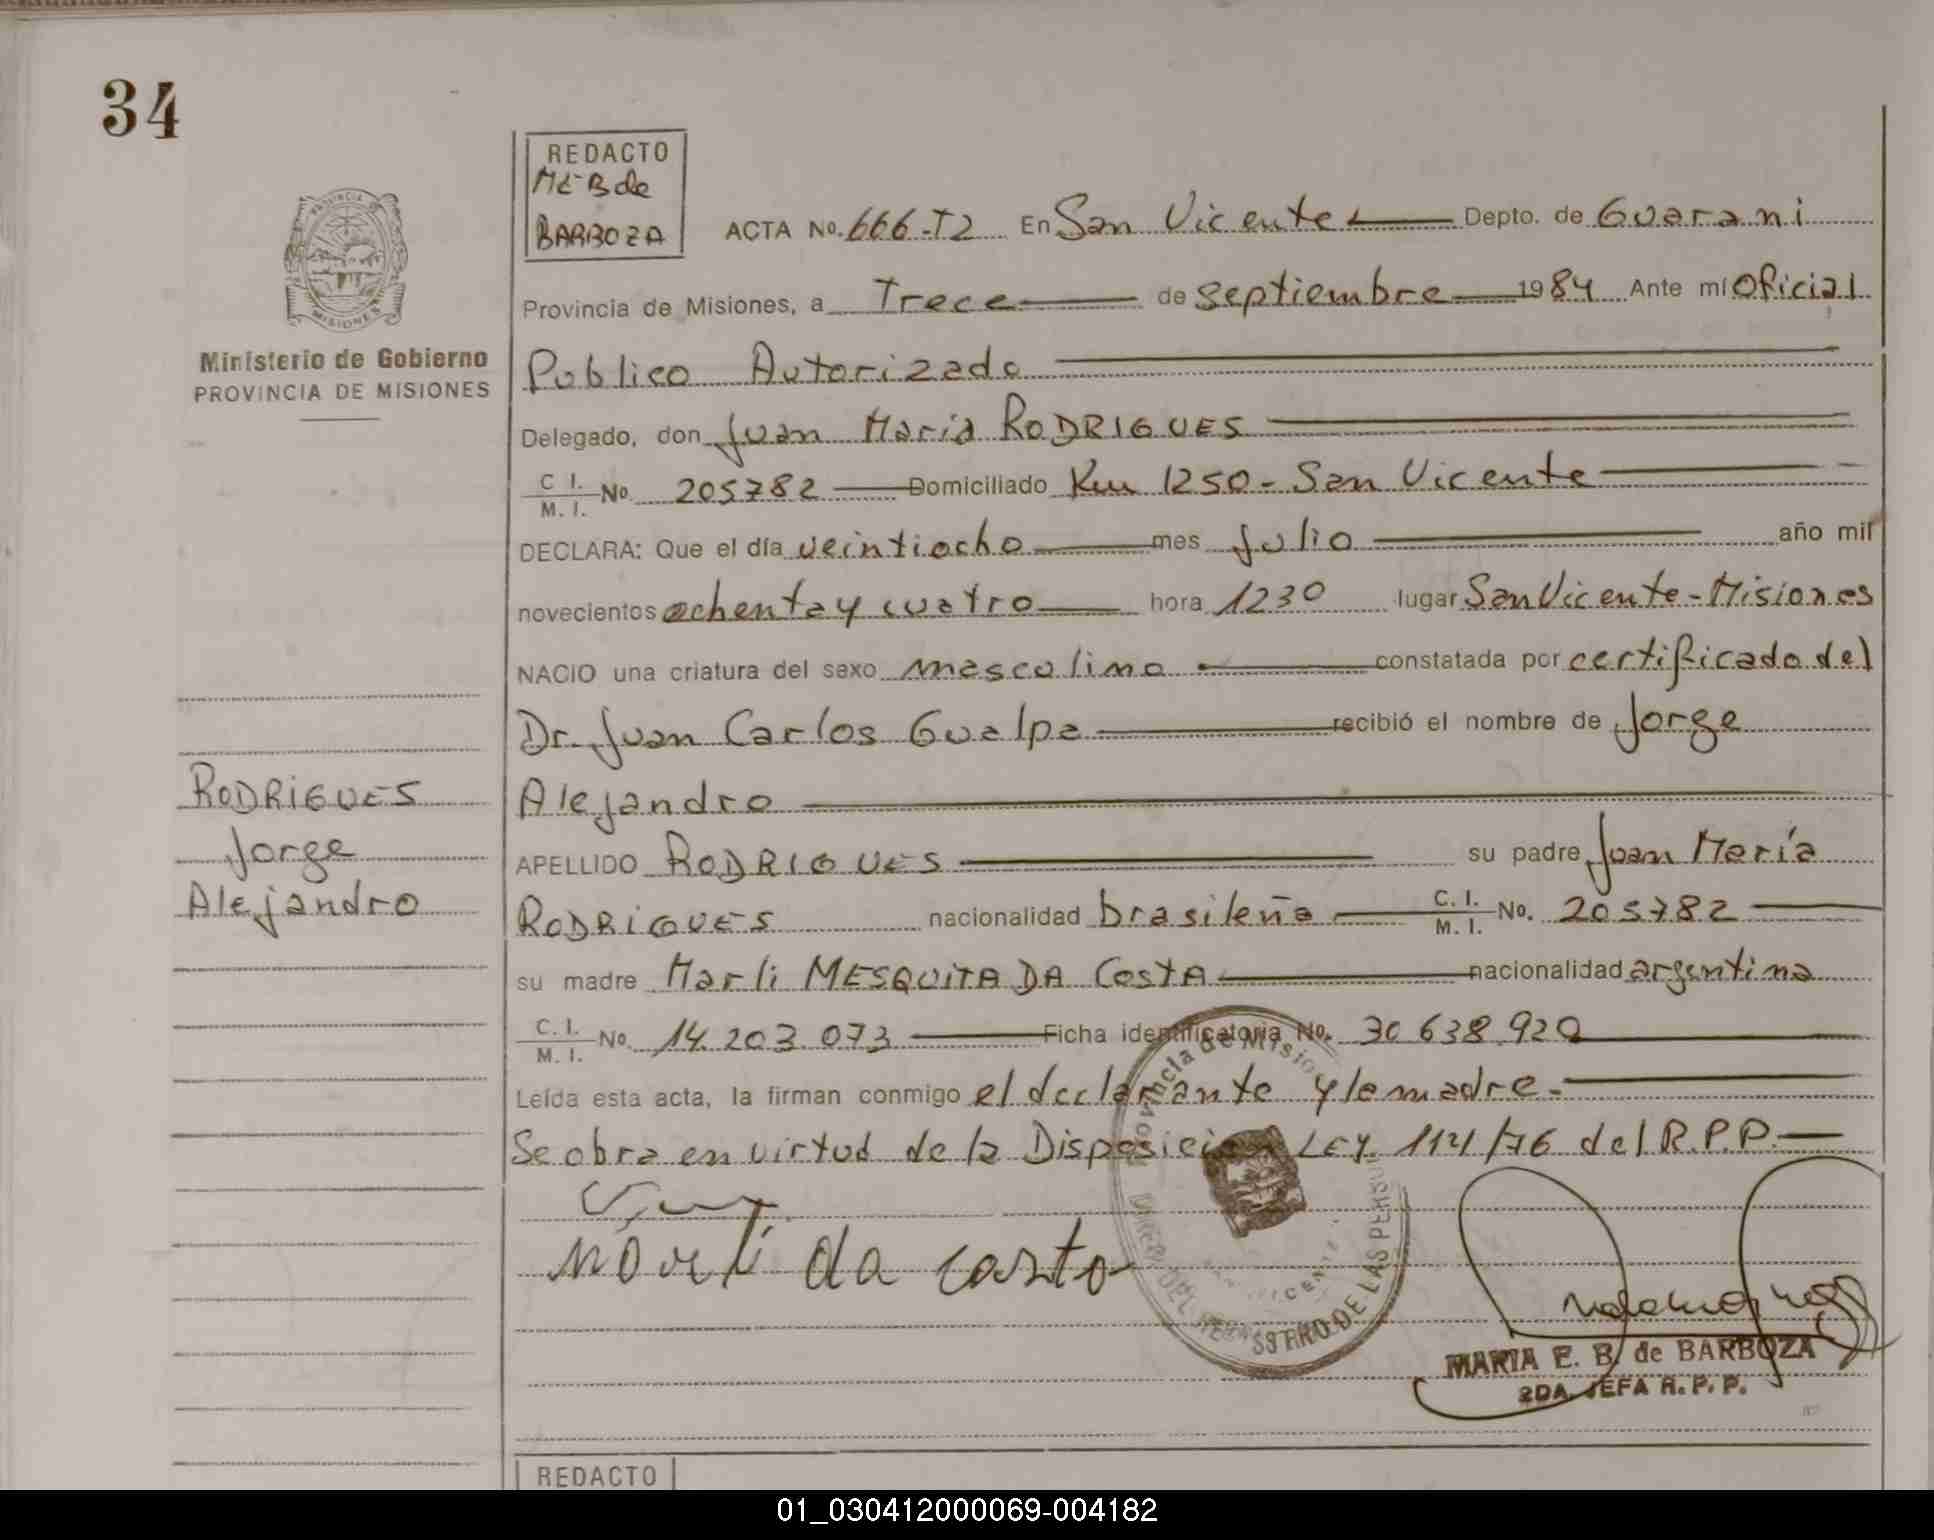 34
REDACTO
MEB de
BARBOZA
ACTA No. 666-T2 En San Vicente Depto. de Guarani
Provincia de Misiones, a Trece de septiembre 1984 Ante mí Oficial
Publico Autorizado
Delegado, don Juan Maria RODRIGUES
C I. / M. I. No. 205782 Domiciliado Km 1250 - San Vicente
DECLARA: Que el día veintiocho mes julio año mil
novecientos ochenta y cuatro hora 1230 lugar San Vicente - Misiones
NACIO una criatura del sexo masculino constatada por certificado del
Dr. Juan Carlos Gualpa recibió el nombre de Jorge
Alejandro
APELLIDO RODRIGUES su padre Juan María
RODRIGUES nacionalidad brasileña C. I. / M. I. No. 205782
su madre Marli MESQUITA DA COSTA nacionalidad argentina
C. I. / M. I. No. 14.203.073 Ficha identificatoria No. 30.638.920
Leída esta acta, la firman conmigo el declarante y la madre.-
Se obra en virtud de la Disposicion LEY. 1121/76 del R.P.P.
marli da costa
MARIA E. B. de BARBOZA
2DA. JEFA R. P. P.
Provincia de Misiones
SAN VICENTE
PROVINCIA DE
MISIONES
Ministerio de Gobierno
PROVINCIA DE MISIONES
RODRIGUES
Jorge
Alejandro
REDACTO
01_030412000069-004182